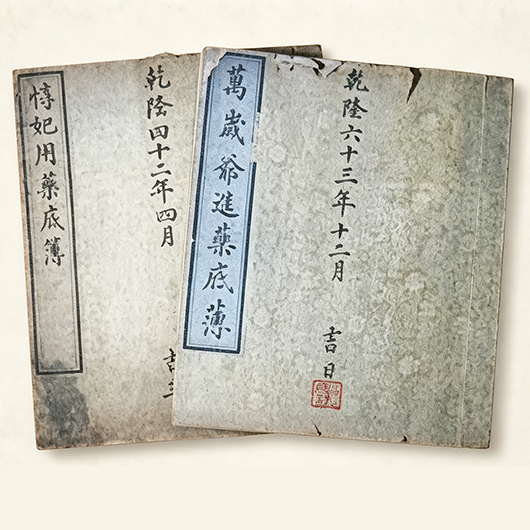 乾隆六十三年十二月
吉日
萬歲爺進藥底薄
乾隆四十二年四月
吉
惇妃用藥底簿